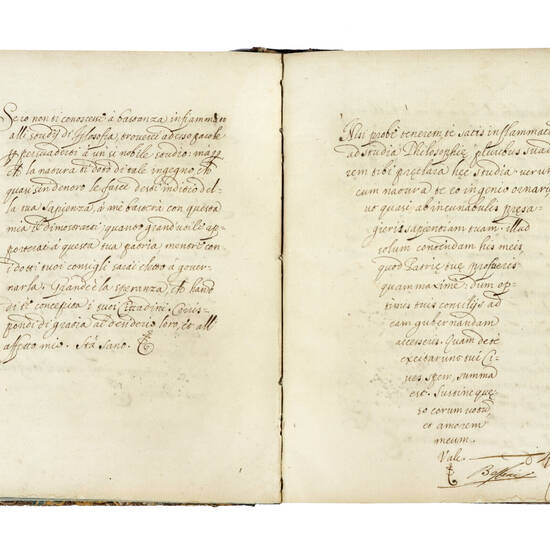 Se io non ti conoscessi à bastanza infiammato
alli studij di filosofia, troverei adesso parole
per persuaderti à un sì nobile studio: mapp.
che la natura ti dotò di tale ingegno, che
quasi sin dentro le fasce desti indicio del-
la tua Sapienza, à me basterà con questa
mia di dimostrarti, quanto grand'utile ap-
porterai à questa tua patria, mentre con-
i dotti tuoi consigli sarai eletto à gover-
narla. Grande è la speranza, che hanno
di te concepita i tuoi Cittadini. Corris-
pondi di gratia al desiderio loro, et all
affetto mio. Stà sano.
Nisi probè tenerem te satis inflammatum
ad studia Philosophiæ, pluribus suade-
rem tibi præclara hæc studia: verum
cum natura te eo ingenio ornarit,
ut quasi ab incunabulis præsa-
gieris sapientiam tuam: illud
solum contendam his meis,
quod Patriæ tuæ profueris
quammaximè: dum op-
timis tuis consilijs ad
eam gubernandam
accesseris. Quam de te
excitarunt tui Ci-
ves spem, summa
est. Sustine quæ-
so eorum vota,
et amorem
meum.
Vale.